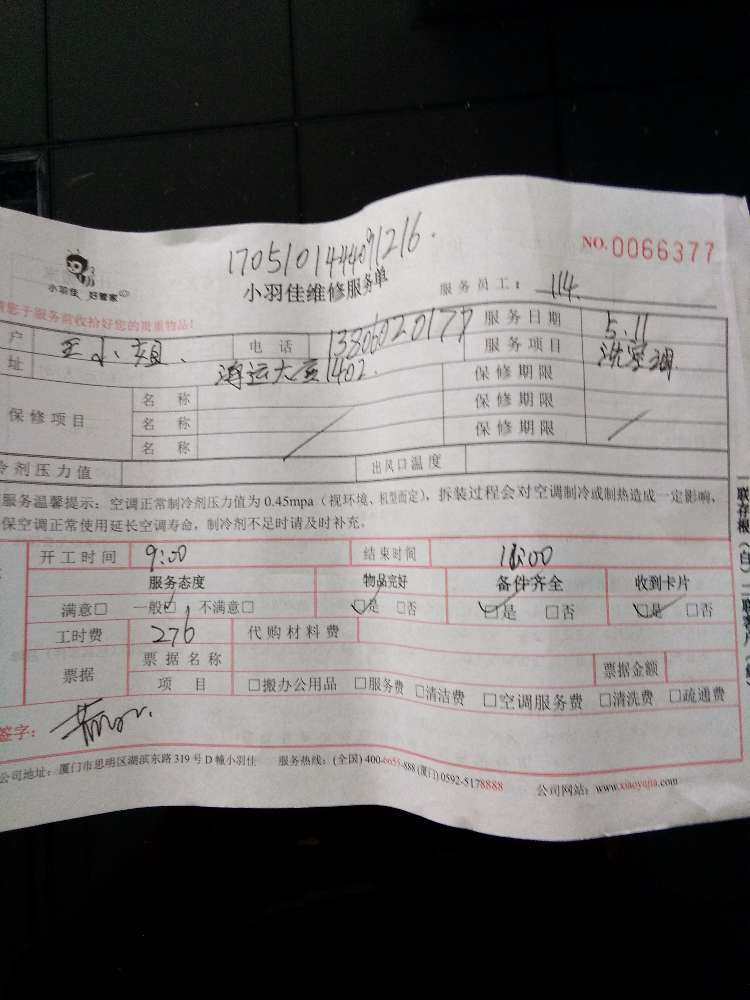 1705101444091216.
NO.0066377
小羽佳 好管家
小羽佳维修服务单
服务员工: 114.
您于服务前收拾好您的贵重物品!
户 王小 电话 13806020177 服务日期 5.11
址 鸿运大厦1402. 服务项目 洗空调
保修项目 名称 保修期限
名称 保修期限
名称 保修期限
冷剂压力值 出风口温度
服务温馨提示: 空调正常制冷剂压力值为 0.45mpa (视环境、机型而定), 拆装过程会对空调制冷或制热造成一定影响,
保空调正常使用延长空调寿命, 制冷剂不足时请及时补充。
开工时间 9:00 结束时间
服务态度 物品完好 备件齐全 收到卡片
满意□ 一般☑ 不满意□ ☑是 □否 ☑是 □否 ☑是 □否
工时费 276 代购材料费
票据 票据名称 票据金额
项目 □搬办公用品 □服务费 □清洁费 □空调服务费 □清洗费 □疏通费
签字:
公司地址: 厦门市思明区湖滨东路 319 号 D 幢小羽佳 服务热线: (全国) 400-6655-888 (厦门) 0592-5178888 公司网站: www.xiaoyujia.com
联存根(白)